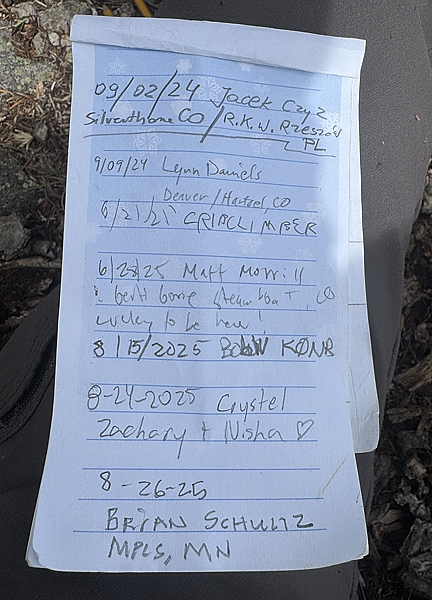 09/02/24 Jacek Czyz
Silverthorne CO / R.K.W. Rzeszów
PL
9/09/24 Lynn Daniels
Denver / Hartsel, CO
6/21/25 CRIBCLIMBER
6/28/25 Matt Morrill
Steamboat, CO
lucky to be here!
8/15/2025 Bob W K0NR
8-24-2025 Crystel
Zachary + Nisha ♡
8-26-25
BRIAN SCHULTZ
MPLS, MN